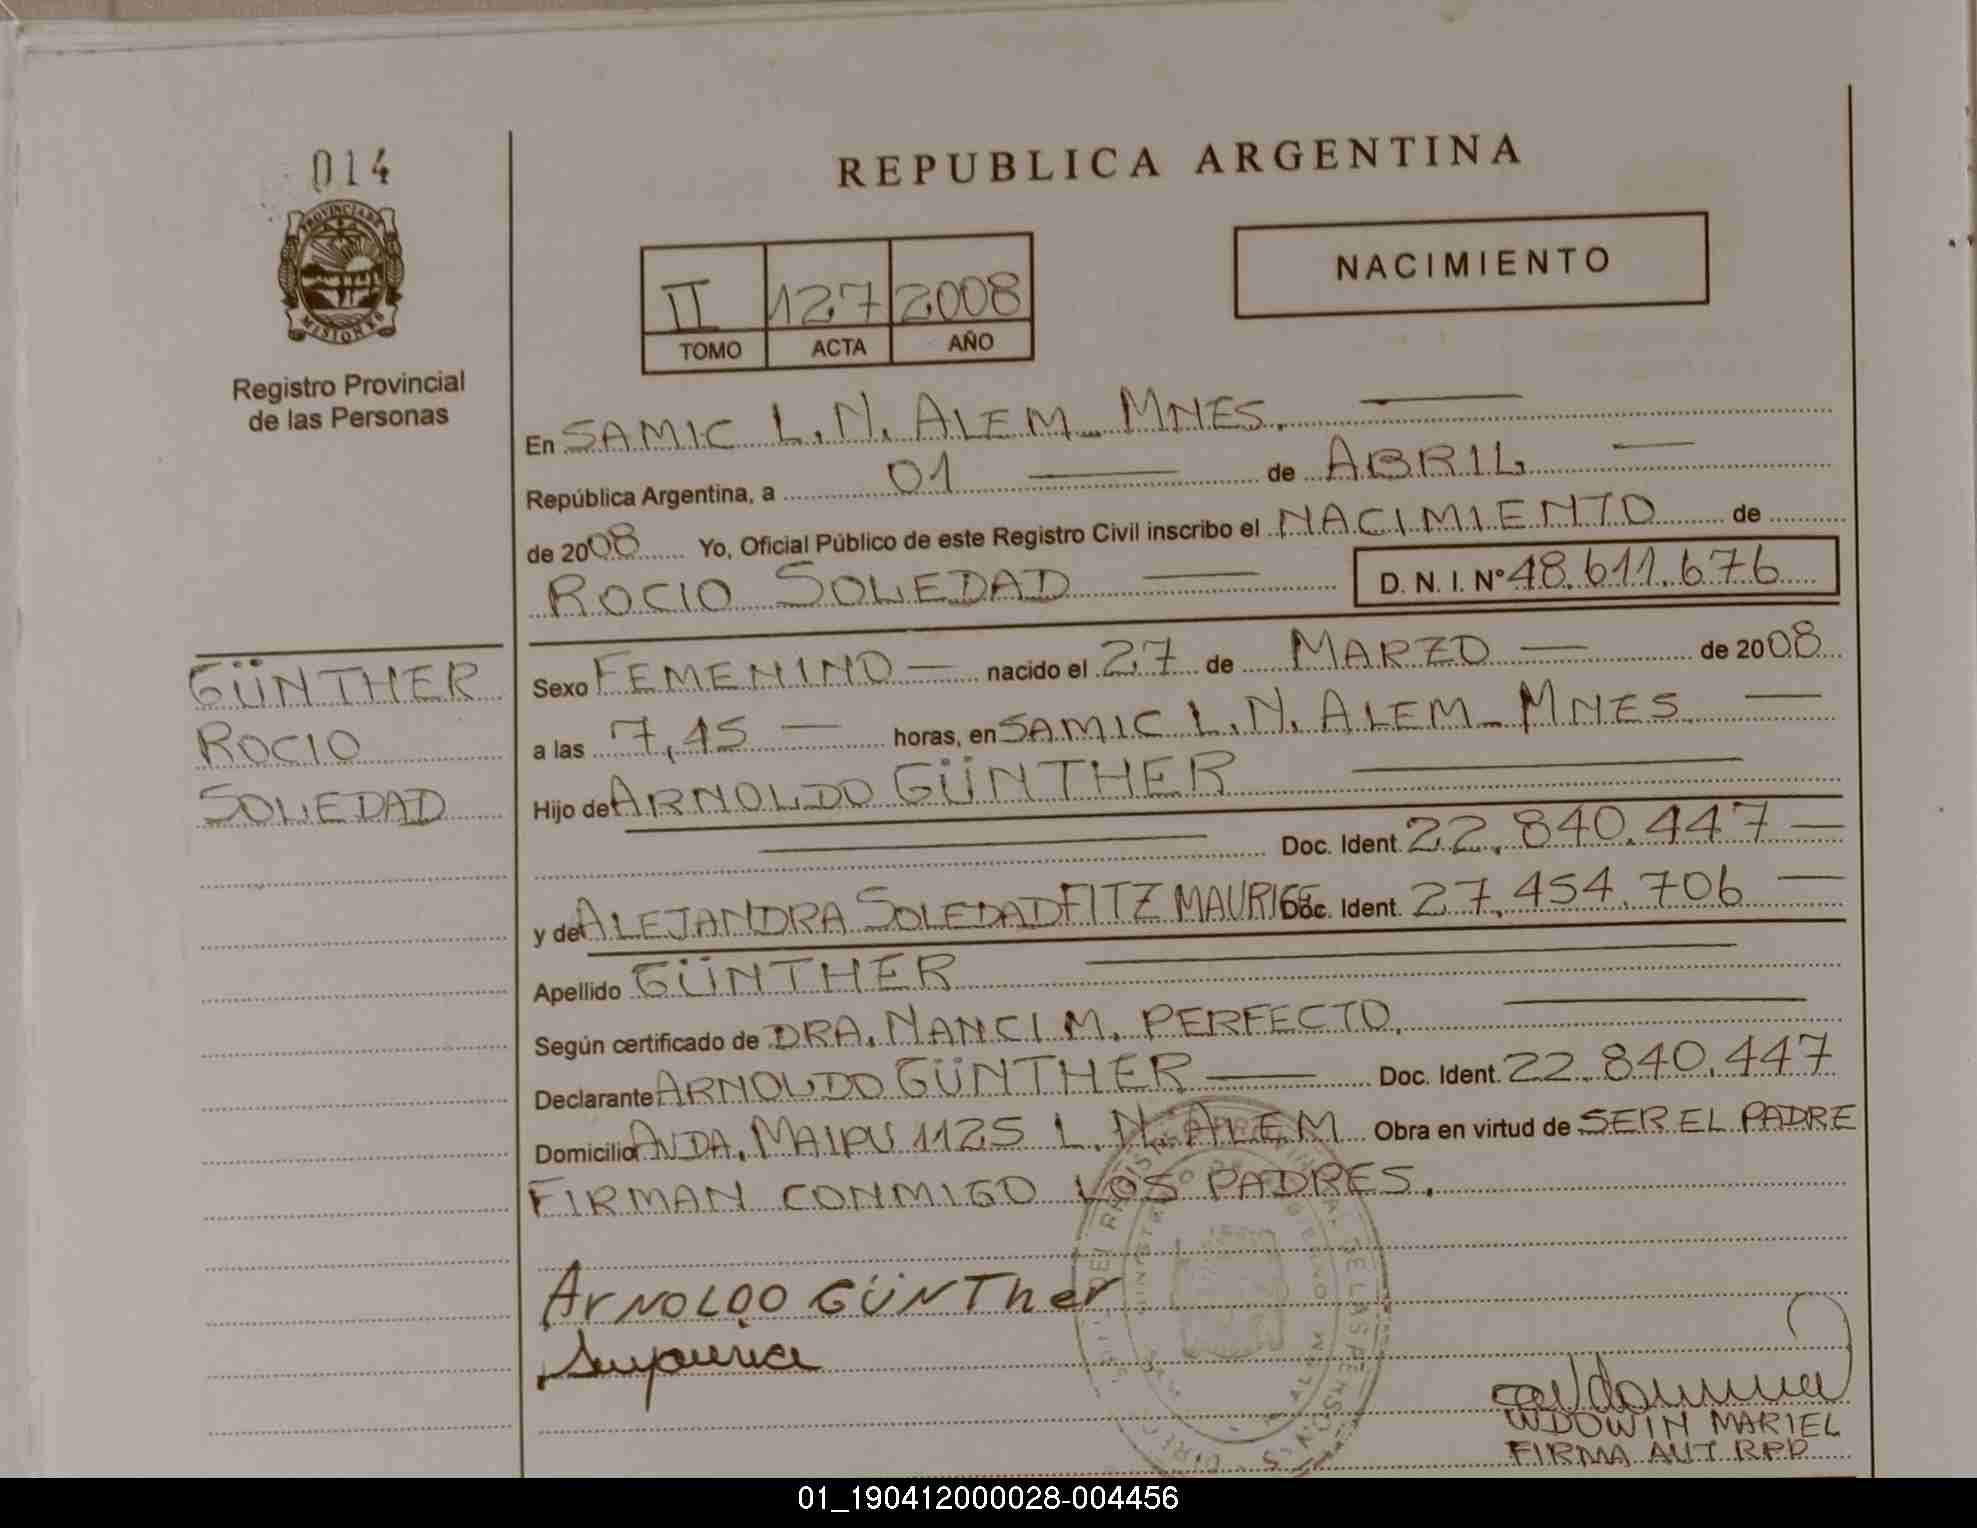 014
PROVINCIA DE
MISIONES
Registro Provincial
de las Personas
GÜNTHER
ROCIO
SOLEDAD
REPUBLICA ARGENTINA
II 127 2008
TOMO ACTA AÑO
NACIMIENTO
En SAMIC L.N. ALEM - MNES.
República Argentina, a 01 de ABRIL
de 2008 Yo, Oficial Público de este Registro Civil inscribo el NACIMIENTO de
ROCIO SOLEDAD D. N. I. Nº 48.611.676
Sexo FEMENINO nacido el 27 de MARZO de 2008
a las 7,45 horas, en SAMIC L.N. ALEM - MNES
Hijo de ARNOLDO GÜNTHER
Doc. Ident. 22.840.447
y de ALEJANDRA SOLEDAD FITZ MAURICE Doc. Ident. 27.454.706
Apellido GÜNTHER
Según certificado de DRA. NANCI M. PERFECTO.
Declarante ARNOLDO GÜNTHER Doc. Ident. 22.840.447
Domicilio AVDA. MAIPU 1125 L.N. ALEM Obra en virtud de SER EL PADRE
FIRMAN CONMIGO LOS PADRES.
ARNOLDO GÜNTHer
WDOWIN MARIEL
FIRMA AUT RPP
01_190412000028-004456